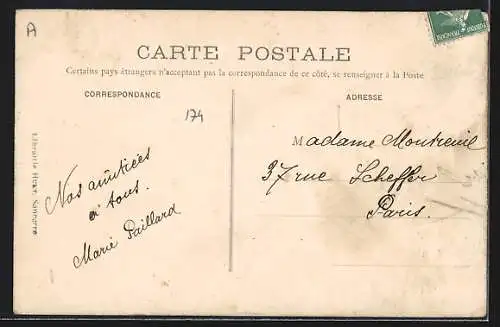 A
CARTE POSTALE
Certains pays étrangers n'acceptant pas la correspondance de ce côté, se renseigner à la Poste
CORRESPONDANCE
ADRESSE
174
Madame Montreuil
37 rue Scheffer
Paris.
Nos amitiées
à tous.
Marie Paillard
Librairie Sancerre